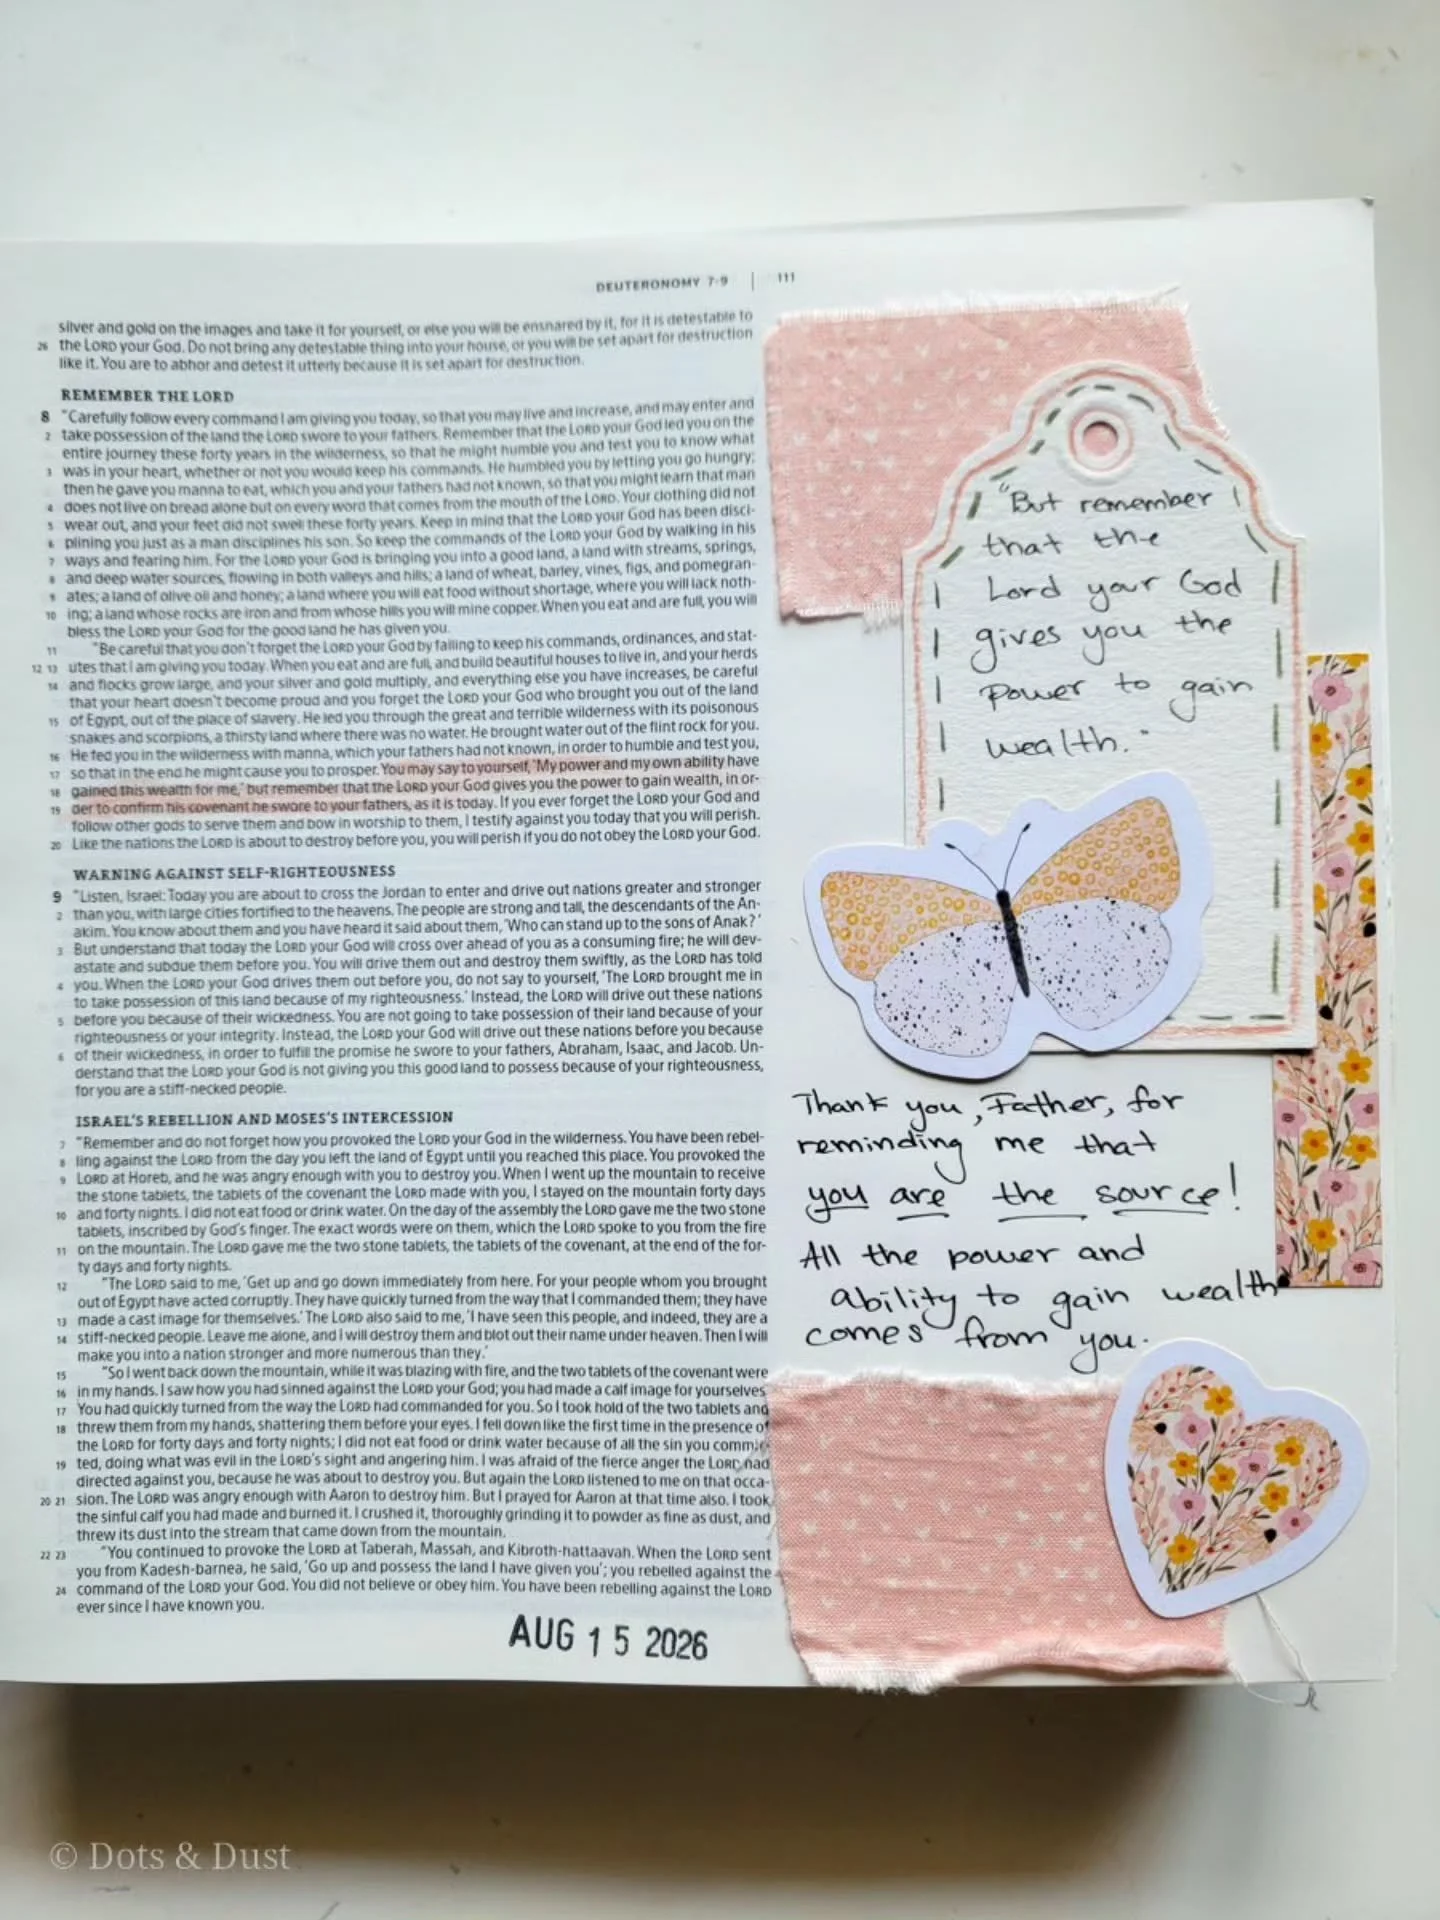 DEUTERONOMY 7-9 | 111
silver and gold on the images and take it for yourself, or else you will be ensnared by it, for it is detestable to
26 the LORD your God. Do not bring any detestable thing into your house, or you will be set apart for destruction
like it. You are to abhor and detest it utterly because it is set apart for destruction.
REMEMBER THE LORD
8 "Carefully follow every command I am giving you today, so that you may live and increase, and may enter and
2 take possession of the land the LORD swore to your fathers. Remember that the LORD your God led you on the
entire journey these forty years in the wilderness, so that he might humble you and test you to know what
3 was in your heart, whether or not you would keep his commands. He humbled you by letting you go hungry;
then he gave you manna to eat, which you and your fathers had not known, so that you might learn that man
4 does not live on bread alone but on every word that comes from the mouth of the LORD. Your clothing did not
5 wear out, and your feet did not swell these forty years. Keep in mind that the LORD your God has been disci-
6 plining you just as a man disciplines his son. So keep the commands of the LORD your God by walking in his
7 ways and fearing him. For the LORD your God is bringing you into a good land, a land with streams, springs,
8 and deep water sources, flowing in both valleys and hills; a land of wheat, barley, vines, figs, and pomegran-
9 ates; a land of olive oil and honey; a land where you will eat food without shortage, where you will lack noth-
10 ing; a land whose rocks are iron and from whose hills you will mine copper. When you eat and are full, you will
bless the LORD your God for the good land he has given you.
11 "Be careful that you don't forget the LORD your God by failing to keep his commands, ordinances, and stat-
12 13 utes that I am giving you today. When you eat and are full, and build beautiful houses to live in, and your herds
14 and flocks grow large, and your silver and gold multiply, and everything else you have increases, be careful
that your heart doesn't become proud and you forget the LORD your God who brought you out of the land
15 of Egypt, out of the place of slavery. He led you through the great and terrible wilderness with its poisonous
snakes and scorpions, a thirsty land where there was no water. He brought water out of the flint rock for you.
16 He fed you in the wilderness with manna, which your fathers had not known, in order to humble and test you,
17 so that in the end he might cause you to prosper. You may say to yourself, 'My power and my own ability have
18 gained this wealth for me,' but remember that the LORD your God gives you the power to gain wealth, in or-
19 der to confirm his covenant he swore to your fathers, as it is today. If you ever forget the LORD your God and
follow other gods to serve them and bow in worship to them, I testify against you today that you will perish.
20 Like the nations the LORD is about to destroy before you, you will perish if you do not obey the LORD your God.
WARNING AGAINST SELF-RIGHTEOUSNESS
9 "Listen, Israel: Today you are about to cross the Jordan to enter and drive out nations greater and stronger
2 than you, with large cities fortified to the heavens. The people are strong and tall, the descendants of the An-
akim. You know about them and you have heard it said about them, 'Who can stand up to the sons of Anak?'
3 But understand that today the LORD your God will cross over ahead of you as a consuming fire; he will dev-
astate and subdue them before you. You will drive them out and destroy them swiftly, as the LORD has told
4 you. When the LORD your God drives them out before you, do not say to yourself, 'The LORD brought me in
to take possession of this land because of my righteousness.' Instead, the LORD will drive out these nations
5 before you because of their wickedness. You are not going to take possession of their land because of your
righteousness or your integrity. Instead, the LORD your God will drive out these nations before you because
6 of their wickedness, in order to fulfill the promise he swore to your fathers, Abraham, Isaac, and Jacob. Un-
derstand that the LORD your God is not giving you this good land to possess because of your righteousness,
for you are a stiff-necked people.
ISRAEL'S REBELLION AND MOSES'S INTERCESSION
7 "Remember and do not forget how you provoked the LORD your God in the wilderness. You have been rebel-
8 ling against the LORD from the day you left the land of Egypt until you reached this place. You provoked the
9 LORD at Horeb, and he was angry enough with you to destroy you. When I went up the mountain to receive
the stone tablets, the tablets of the covenant the LORD made with you, I stayed on the mountain forty days
10 and forty nights. I did not eat food or drink water. On the day of the assembly the LORD gave me the two stone
tablets, inscribed by God's finger. The exact words were on them, which the LORD spoke to you from the fire
11 on the mountain. The LORD gave me the two stone tablets, the tablets of the covenant, at the end of the for-
ty days and forty nights.
12 "The LORD said to me, 'Get up and go down immediately from here. For your people whom you brought
out of Egypt have acted corruptly. They have quickly turned from the way that I commanded them; they have
13 made a cast image for themselves.' The LORD also said to me, 'I have seen this people, and indeed, they are a
14 stiff-necked people. Leave me alone, and I will destroy them and blot out their name under heaven. Then I will
make you into a nation stronger and more numerous than they.'
15 "So I went back down the mountain, while it was blazing with fire, and the two tablets of the covenant were
16 in my hands. I saw how you had sinned against the LORD your God; you had made a calf image for yourselves.
17 You had quickly turned from the way the LORD had commanded for you. So I took hold of the two tablets and
18 threw them from my hands, shattering them before your eyes. I fell down like the first time in the presence of
the LORD for forty days and forty nights; I did not eat food or drink water because of all the sin you commit-
19 ted, doing what was evil in the LORD's sight and angering him. I was afraid of the fierce anger the LORD had
directed against you, because he was about to destroy you. But again the LORD listened to me on that occa-
20 21 sion. The LORD was angry enough with Aaron to destroy him. But I prayed for Aaron at that time also. I took
the sinful calf you had made and burned it. I crushed it, thoroughly grinding it to powder as fine as dust, and
threw its dust into the stream that came down from the mountain.
22 23 "You continued to provoke the LORD at Taberah, Massah, and Kibroth-hattaavah. When the LORD sent
you from Kadesh-barnea, he said, 'Go up and possess the land I have given you'; you rebelled against the
24 command of the LORD your God. You did not believe or obey him. You have been rebelling against the LORD
ever since I have known you.
AUG 15 2026
"But remember
that the
Lord your God
gives you the
power to gain
wealth."
Thank you, Father, for
reminding me that
you are the source!
All the power and
ability to gain wealth
comes from you.
© Dots & Dust